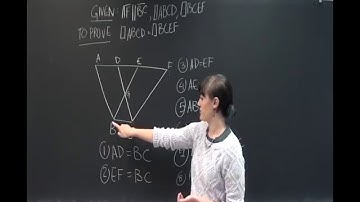 GIVEN: AF∥BC, □ABCD, □BCEF
TO PROVE □ABCD=□BCEF
A D E F
G
B
① AD=BC
② EF=BC
③ AD=EF
④ AE
⑤ AB
⑧